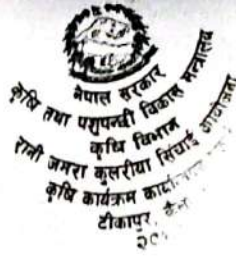 नेपाल सरकार
कृषि तथा पशुपन्छी विकास मन्त्रालय
कृषि विभाग
रानी जमरा कुलरीया सिंचाई आयोजना
कृषि कार्यक्रम
टीकापुर,